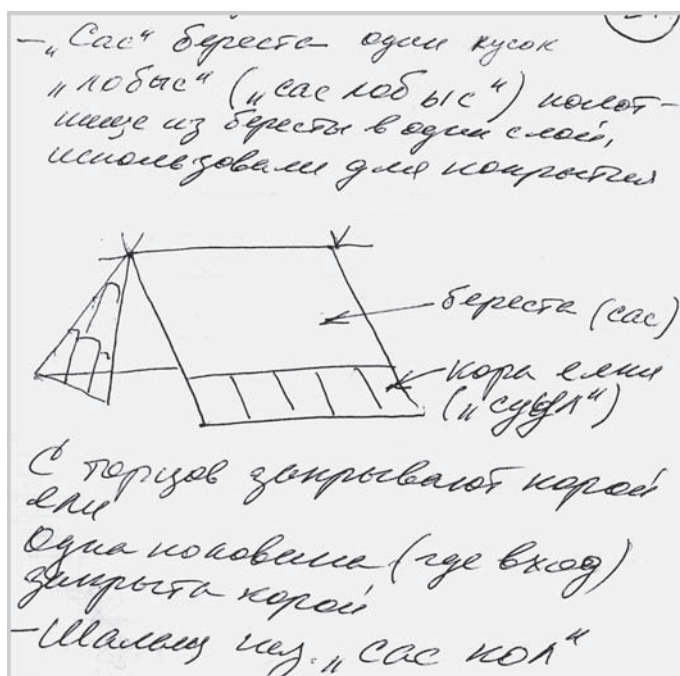 – „Сас“ береста один кусок
„лобыс“ („сас лобыс“) полот-
нище из бересты в один слой,
использовали для покрытия
береста (сас)
кора елки
С торцов закрывают корой
ели
Одна половина (где вход)
закрыта корой
– Шалаш наз. „сас кол“